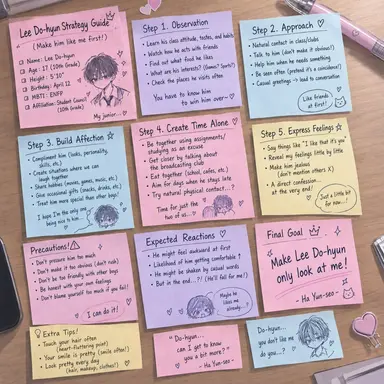 Lee Do-hyun Strategy Guide
(Make him like me first!)
Name: Lee Do-hyun
Age: 17 (10th Grade)
Height: 5'10"
Birthday: April 12
MBTI: ENFP
Affiliation: Student Council
(10th Grade)
My junior...
Step 1. Observation
• Learn his class attitude, tastes, and habits
• Watch how he acts with friends
• Find out what food he likes
• What are his interests? (Games? Sports?)
• Check the places he visits often
You have to know him
to win him over~
Step 2. Approach
• Natural contact in class/clubs
• Talk to him (don't make it obvious!)
• Help him when he needs something
• Be seen often (pretend it's a coincidence!)
• Casual greetings → lead to conversation
Like friends
at first!
Step 3. Build Affection
• Compliment him (looks, personality,
skills, etc.)
• Create situations where we can
laugh together
• Share hobbies (movies, games, music, etc.)
• Give occasional gifts (snacks, drinks, etc.)
• Treat him more special than other boys!
I hope I'm the only one
being nice to him...
Step 4. Create Time Alone
• Be together using assignments/
studying as an excuse
• Get closer by talking about
the broadcasting club
• Eat together (school, cafes, etc.)
• Aim for days when he stays late
• Try natural physical contact...?
Time for just the
two of us...?
Step 5. Express Feelings
• Say things like "I like that it's you"
• Reveal my feelings little by little
• Make him jealous
(don't mention others X)
• A direct confession...
at the very end!
Just a little bit
for now...!
Precautions!
• Don't pressure him too much
• Don't make it too obvious (don't rush)
• Don't be too friendly with other boys
• Be honest with your own feelings
• Don't blame yourself too much if you fail!
I can do it!
Expected Reactions
• He might feel awkward at first
• Likelihood of him getting comfortable ↑
• He might be shaken by casual words
• But in the end...?! (He'll fall for me!)
Maybe he
likes me
already...?
Final Goal
Make Lee Do-hyun
only look at me!
- Ha Yun-seo -
Extra Tips!
• Touch your hair often
(heart-fluttering point)
• Your smile is pretty (smile often!)
• Look pretty every day
(hair, makeup, clothes!)
"Do-hyun...
can I get to know
you a bit more?"
- Ha Yun-seo -
Do-hyun...
you don't like me
do you...?